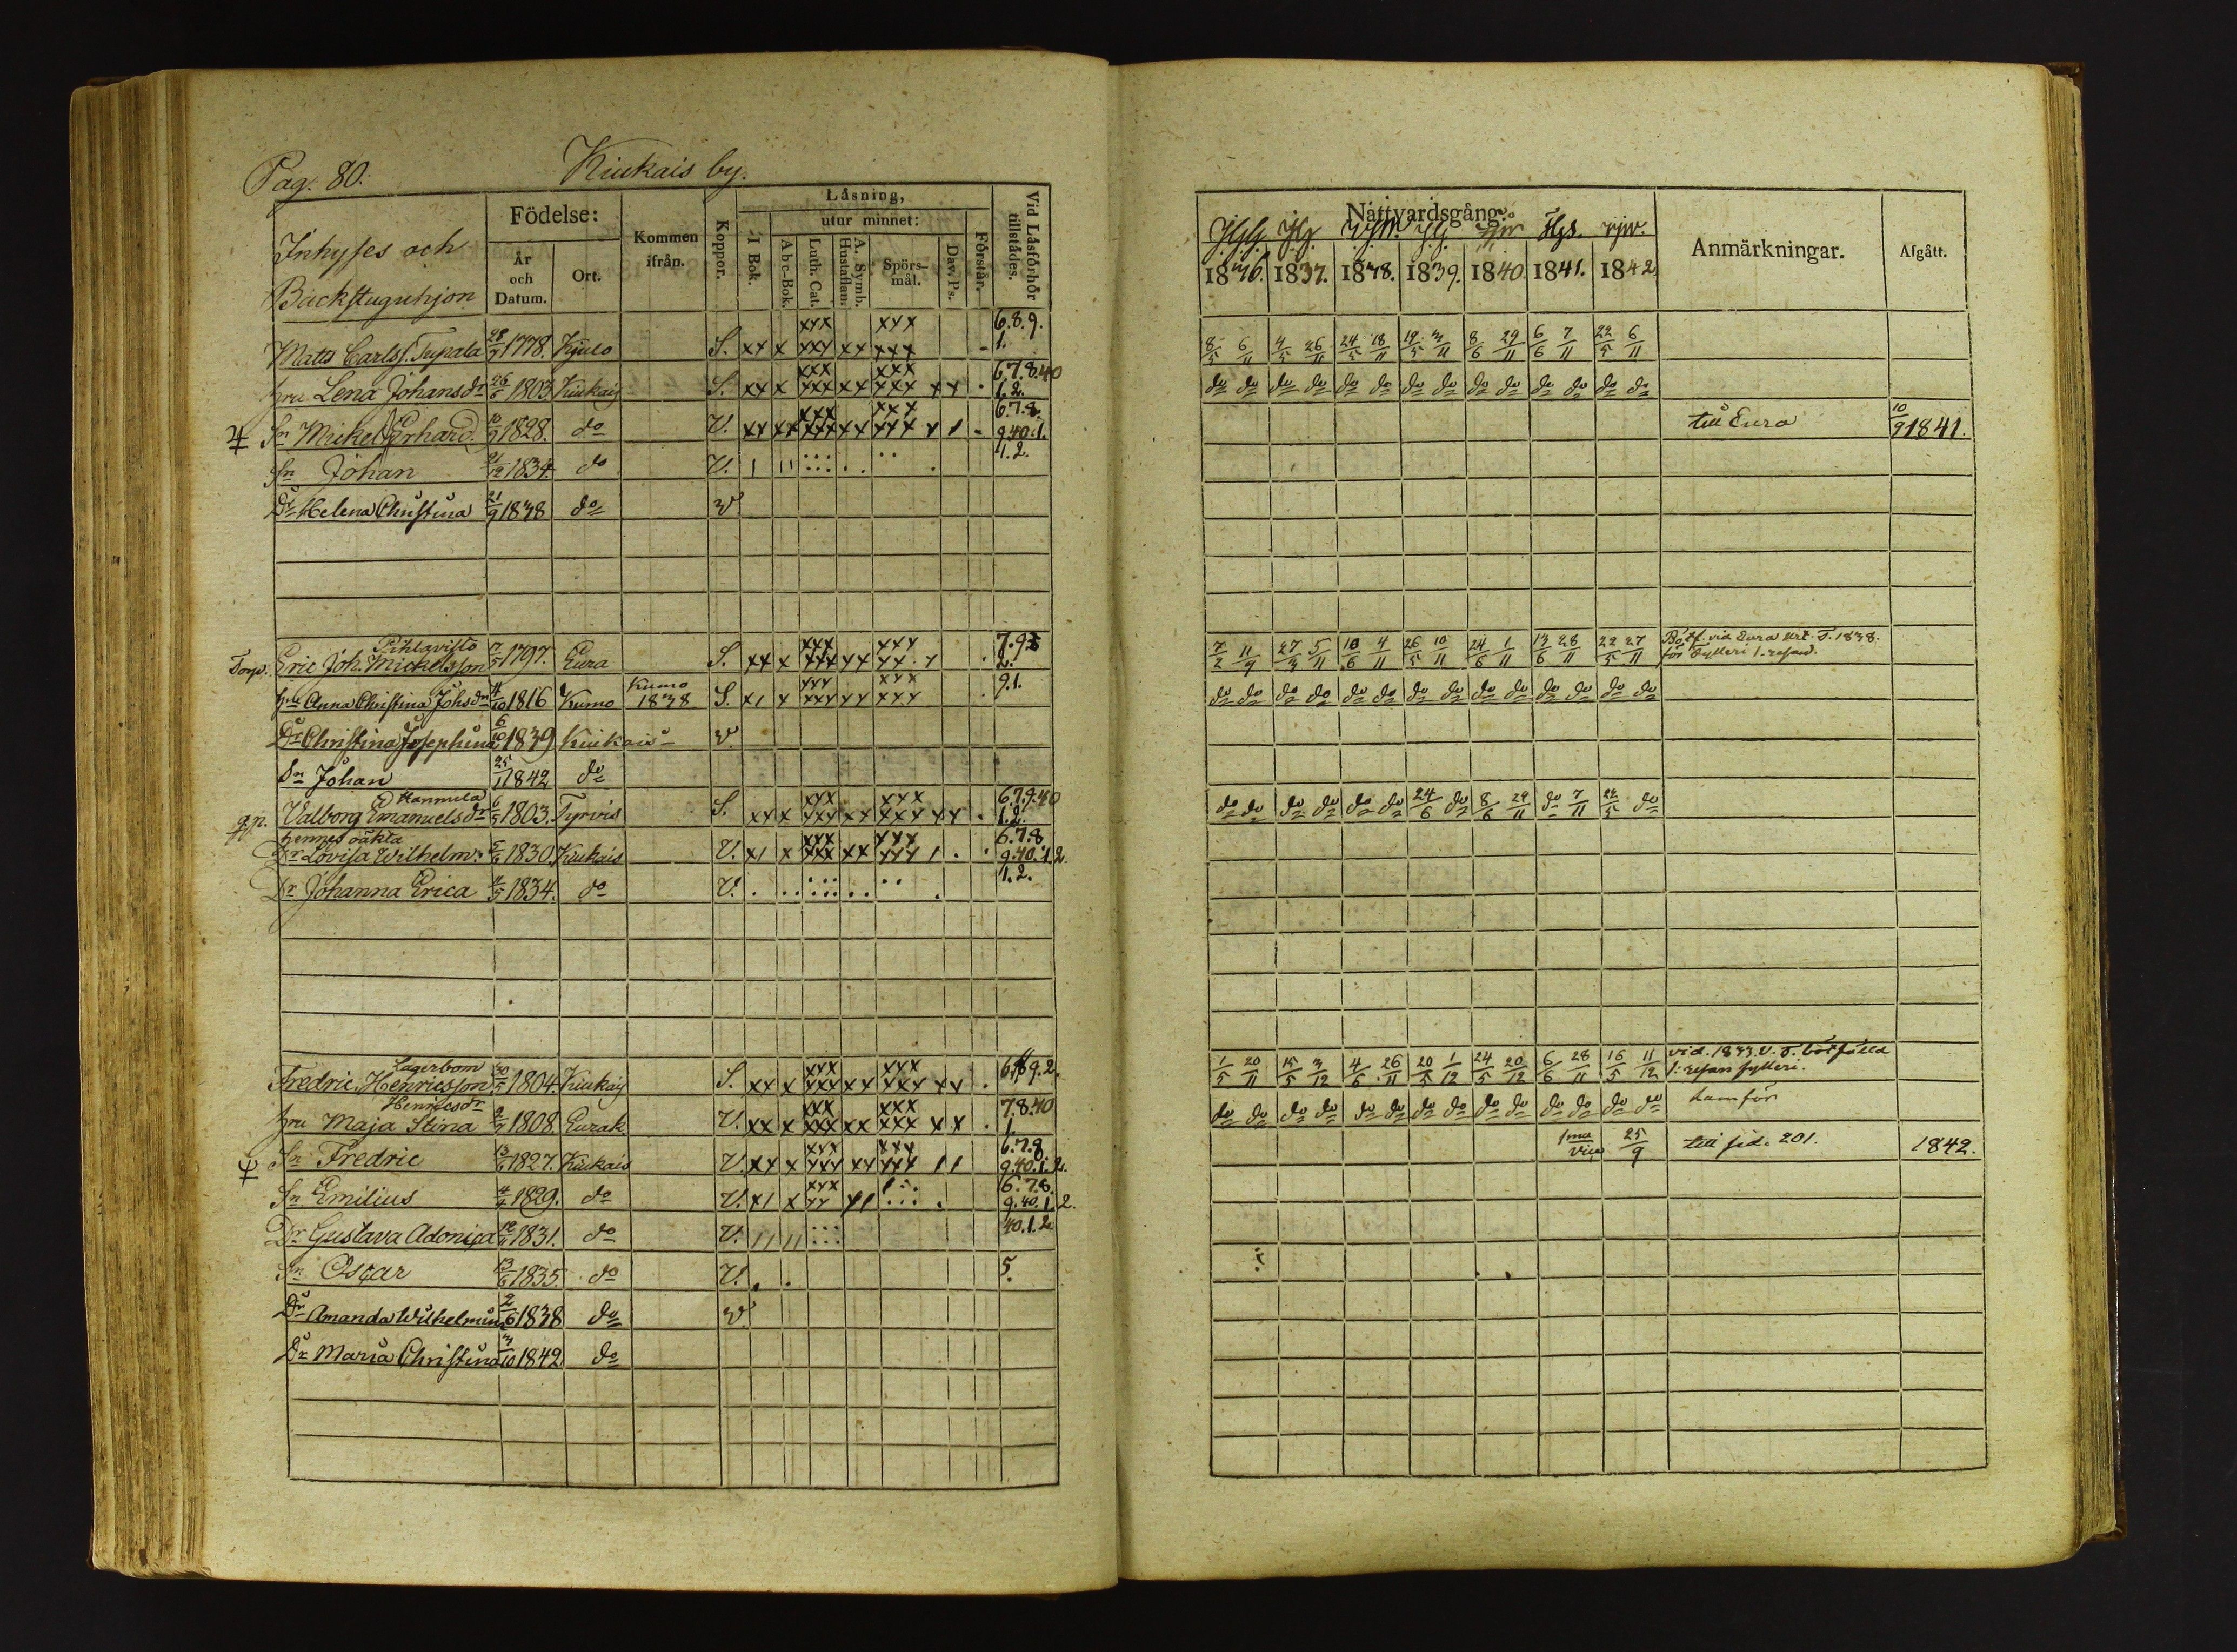 Pag. 80. Kiukais by.
Inhyses och
Backstuguhjon
Födelse:
År
och
Datum.
Ort.
Kommen
ifrån.
Koppor.
Läsning,
I Bok.
utur minnet:
Abc-Bok.
Luth. Cat.
A. Symb.
Hustaflan.
Spörs-
mål.
Dav. Ps.
Förstår.
Vid Läsförhör
tillstädes.
Matts Carlss. Tupala 28/7 1778. Kjulo S. xx x xxx xxx xx xxx xxx - 6.8.9. 1.
hru Lena Johansdr 26/8 1803. Kiukais S. xx x xxx xxx xx xxx xxx xx . 6.7.8.40 1.2.
Sn Mickel Erhard. 10/9 1828. do V. xx xx xxx xxx xx xxx xxx x 1 - 6.7.8. 9.40.1.
Sn Johan 21/12 1834. do V. 1.2.
Dr Helena Christina 21/9 1838 do v
Torp. Pihlavisto
Eric Joh. Mickelsson 7/5 1797. Eura S. xx x xxx xxx xx xxx xx . x . 7.9. 2.
hru Anna Christina Johsdr 1816 Kumo Kumo 1838 S. x1 x xxx xxx xx xxx xxx . 9.1.
Dr Christina Josephina 6/10 1839 Kiukais v.
Sn Johan 25/11 1842 do
Hannula
Valborg Emanuelsdr 6/5 1803. Tyrvis S. xx x xxx xxx xx xxx xxx xx . 6.7.9.40 1.2.
hennes oäkta
Dr Lovisa Wilhelm: 5/6 1830. Kiukais V. x1 x xxx xxx xx xxx xxx 1 . . 6.7.8. 9.40.1.2
Dr Johanna Erica 1834. do V. 1.2.
Lagerbom
Fredric Henricsson 30/5 1804. Kiukais S. xx x xxx xxx xx xxx xxx xx . 9.2.
Henricsdr
hru Maja Stina 1808. Eurak. V. xx x xxx xxx xx xxx xxx xx . 7.8.40 1
Sn Fredric 13/6 1827. Kiukais V. xx x xxx xxx xx xxx xxx 11 6.7.8. 9.40.1.2.
Sn Emilius 1829. do V. x1 x xxx xx x1 6.7.8. 9.40.1.2.
Dr Gustava Adonica 12/11 1831. do V. 11 11 40.1.2
Sn Oscar 13/6 1835. do V. . . 5.
Dr Amanda Wilhelmina 2/6 1838 do v.
Dr Maria Christina 3/10 1842 do
Nattvardsgång.
1836. 1837. 1838. 1839. 1840. 1841. 1842.
Anmärkningar.
Afgått.
8/5 6/11 4/5 26/11 24/5 18/11 19/5 3/11 8/6 29/11 6/6 7/11 22/5 6/11
do do do do do do do do do do do do do do
till Eura 10/9 1841.
7/2 11/9 27/3 5/11 10/6 4/11 26/5 10/11 24/6 1/11 13/6 28/11 22/5 27/11 Bötf. vid Eura Urt. T. 1838.
för Fylleri 1. resan.
do do do do do do do do do do do do do do
do do do do do do 24/6 do 8/6 29/11 do 7/11 22/5 do
1/5 20/11 15/5 3/12 4/6 26/11 20/5 1/12 24/5 20/12 6/6 28/11 16/5 11/12 vid. 1833. V. T. bötfälld
1: resan fylleri.
do do do do do do do do do do do do do do
1ma vice 25/9 till sid. 201. 1842.